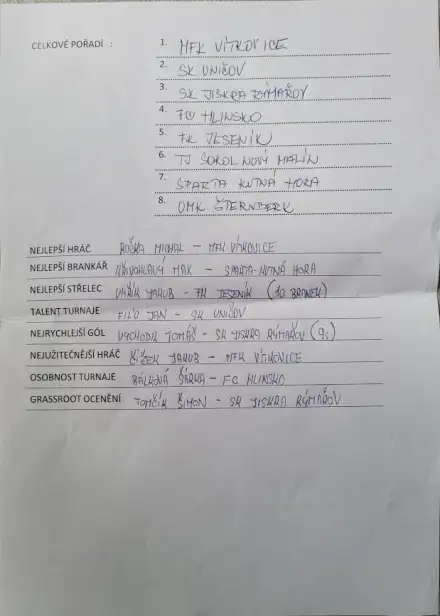 CELKOVÉ POŘADÍ :
1. MFK VÍTKOVICE
2. SK UNIČOV
3. SK JISKRA RÝMAŘOV
4. FC HLINSKO
5. FK JESENÍK
6. TJ SOKOL NOVÝ MALÍN
7. SPARTA KUTNÁ HORA
8. OMK ŠTERNBERK
NEJLEPŠÍ HRÁČ MICHAL – MFK VÍTKOVICE
NEJLEPŠÍ BRANKÁŘ KŘIVOHLAVÝ MAX – SPARTA KUTNÁ HORA
NEJLEPŠÍ STŘELEC JAKUB – FK JESENÍK (10 BRANEK)
TALENT TURNAJE FILO JAN – SK UNIČOV
NEJRYCHLEJŠÍ GÓL VYCHODIL TOMÁŠ – SK JISKRA RÝMAŘOV (9s)
NEJUŽITEČNĚJŠÍ HRÁČ ČÍŽEK JAKUB – MFK VÍTKOVICE
OSOBNOST TURNAJE BÁLKOVÁ ŠÁRKA – FC HLINSKO
GRASSROOT OCENĚNÍ TOMČÍK ŠIMON – SK JISKRA RÝMAŘOV